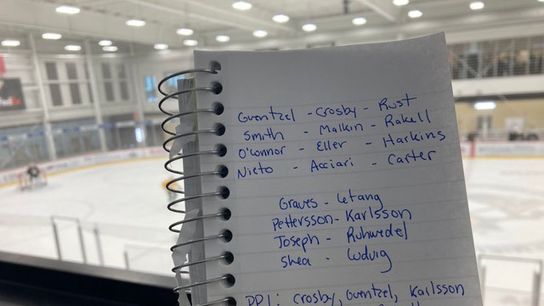 Guentzel - Crosby - Rust
Smith - Malkin - Rakell
O'Connor - Eller - Harkins
Nieto - Acciari - Carter
Graves - Letang
Pettersson - Karlsson
Joseph - Ruhwedel
Shea - Ludvig
PP1: Crosby, Guentzel, Karlsson